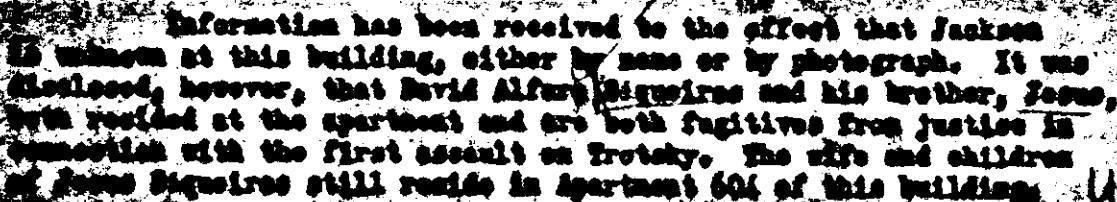 Information has been received to the effect that Jackson
is unknown at this building, either by name or by photograph. It was
disclosed, however, that David Alfaro Siqueiros and his brother, Jesus,
both resided at the apartment and are both fugitives from justice in
connection with the first assault on Trotsky. The wife and children
of Jesus Siqueiros still reside in Apartment 604 of this building.